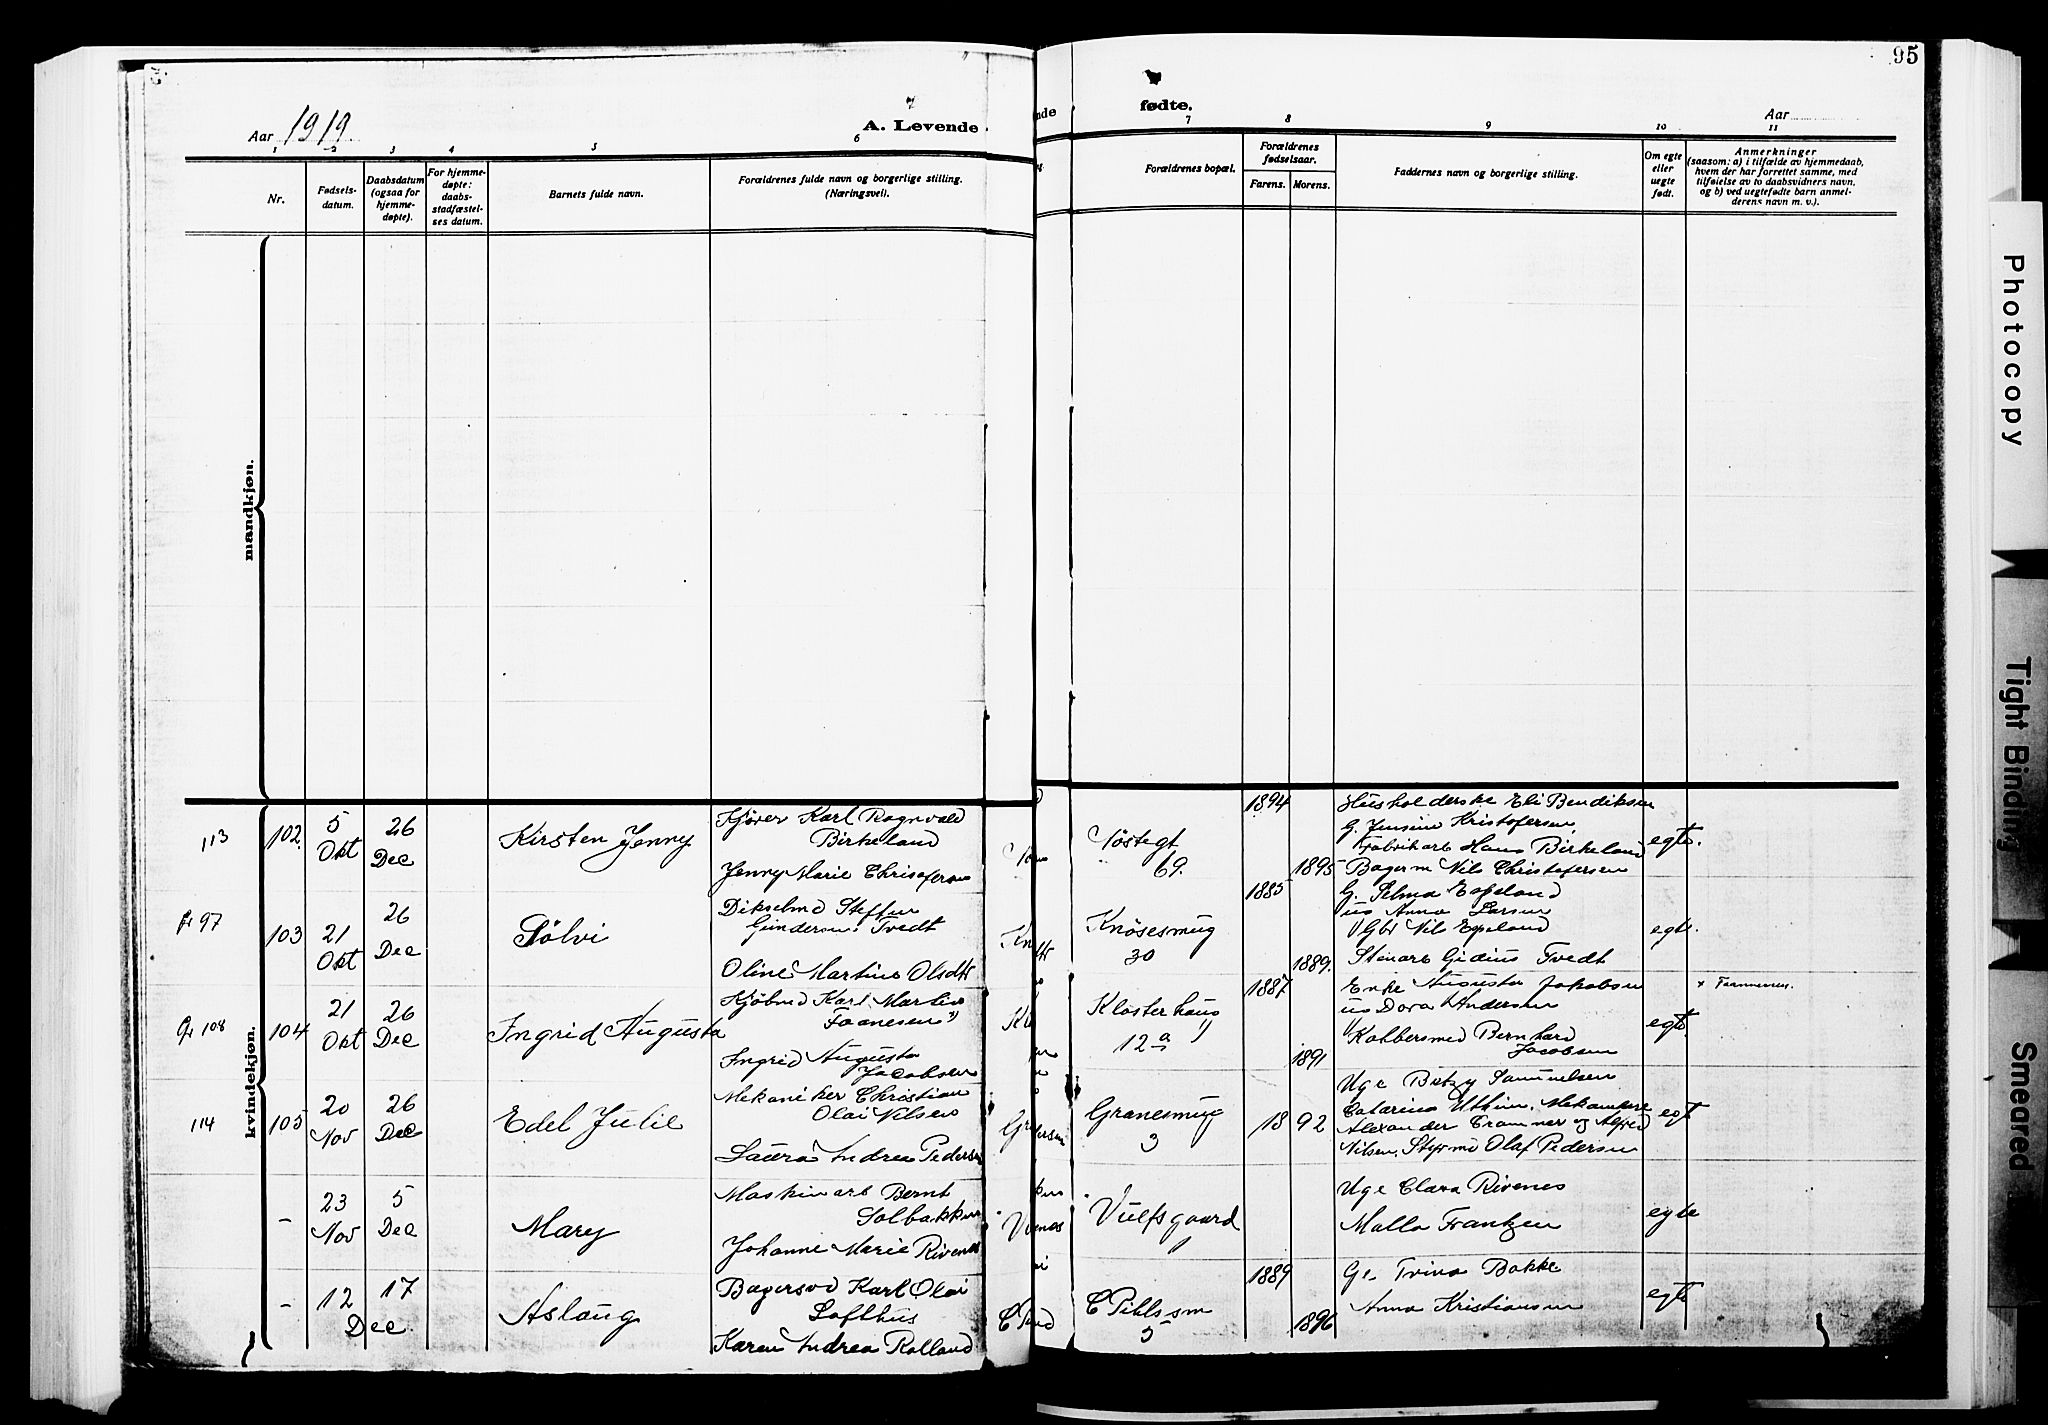 95
Aar 1919.
A. Levende
fødte.
Aar
1 2 3 4 5 6
7 8 9 10 11
Nr.
Fødsels-
datum.
Daabsdatum
(ogsaa for
hjemme-
døpte).
For hjemme-
døpte:
daabs-
stadfæstel-
ses datum.
Barnets fulde navn.
Forældrenes fulde navn og borgerlige stilling.
(Næringsvei).
Forældrenes bopæl.
Forældrenes
fødselsaar.
Farens. Morens.
Faddernes navn og borgerlige stilling.
Om egte
eller
uegte
født.
Anmerkninger
(saasom: a) i tilfælde av hjemmedaab,
hvem der har forrettet samme, med
tilføielse av to daabsvidners navn,
og b) ved uegtefødte barn anmel-
derens navn m. v.).
mandkjøn.
kvindekjøn.
113 102. 5 Okt 26 Dec
Kirsten Jenny
Kjører Karl Ragnvald
Birkeland
Jenny Marie
Tøstegt
69.
1894
1895
Husholderske Eli Bendiksen
G. Jensine Kristofersen,
Fabrikarb Hans Birkeland
Bagerm Nils Christofersen
egte.
97 103 21 Okt 26 Dec
Sølvi
Steffen
Gundersen Tvedt
Oline Martine Olsdtr
Knøsesmug
30
1885
1889.
G. Selma Egeland
Anna Larsen
Nils Egeland
Stenarb Gidius Tvedt
egte.
108 104 21 Okt 26 Dec
Ingrid Augusta
Kjøbmd Karl Martin
Ingrid Augusta
Jacobsen
Klosterhaug
12a
1887
1891
Enke Augusta Jakobsen
Dora Andersen
Kobbersmed Bernhard
Jacobsen
egte.
114 105 20 Nov 26 Dec
Edel Julie
Mekaniker Christian
Olai Nilsen
Laura Andrea Pedersen
Granesmug
3
1892
Uge Betzy Samuelsen
Alexander Trammer og Alfred
Nilsen, Styrmd Olaf Pedersen
egt
- 23 Nov 5 Dec
Mary
Maskinarb Bernt
Solbakken
Johanne Marie Rivenes
Vulfsgaard
Uge Clara Rivenes
Malla Frantzen
egte
- 12 17 Dec.
Aslaug
Bagersvd Karl Olai
Lofthus
Karen Andrea Rolland
C Pihls sm
5
1889
1896
Ge Trina Bakke
Anna Kristiansen
egte
Photocopy
Tight Binding
Smeared